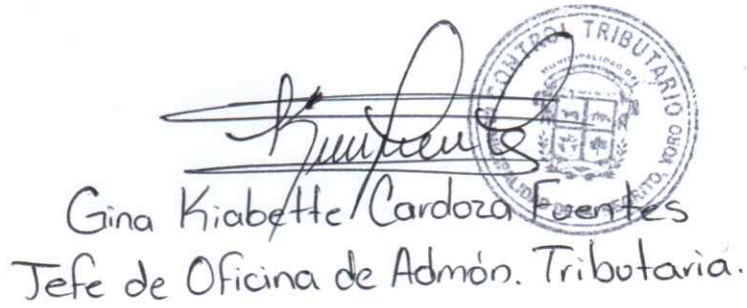 CONTROL TRIBUTARIO
MUNICIPALIDAD DE
YORO
Gina Kiabette Cardoza Fuentes
Jefe de Oficina de Admón. Tributaria.